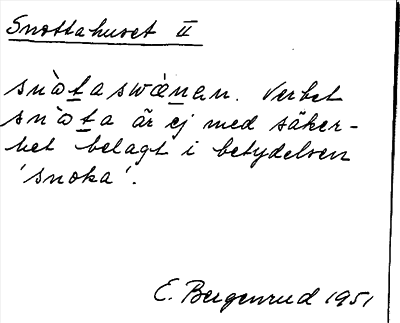 Snottahuset II
snòtaswǽnen. Verbet
snòta är ej med säker-
het belagt i betydelsen
'snoka'.
E. Bergenrud 1951